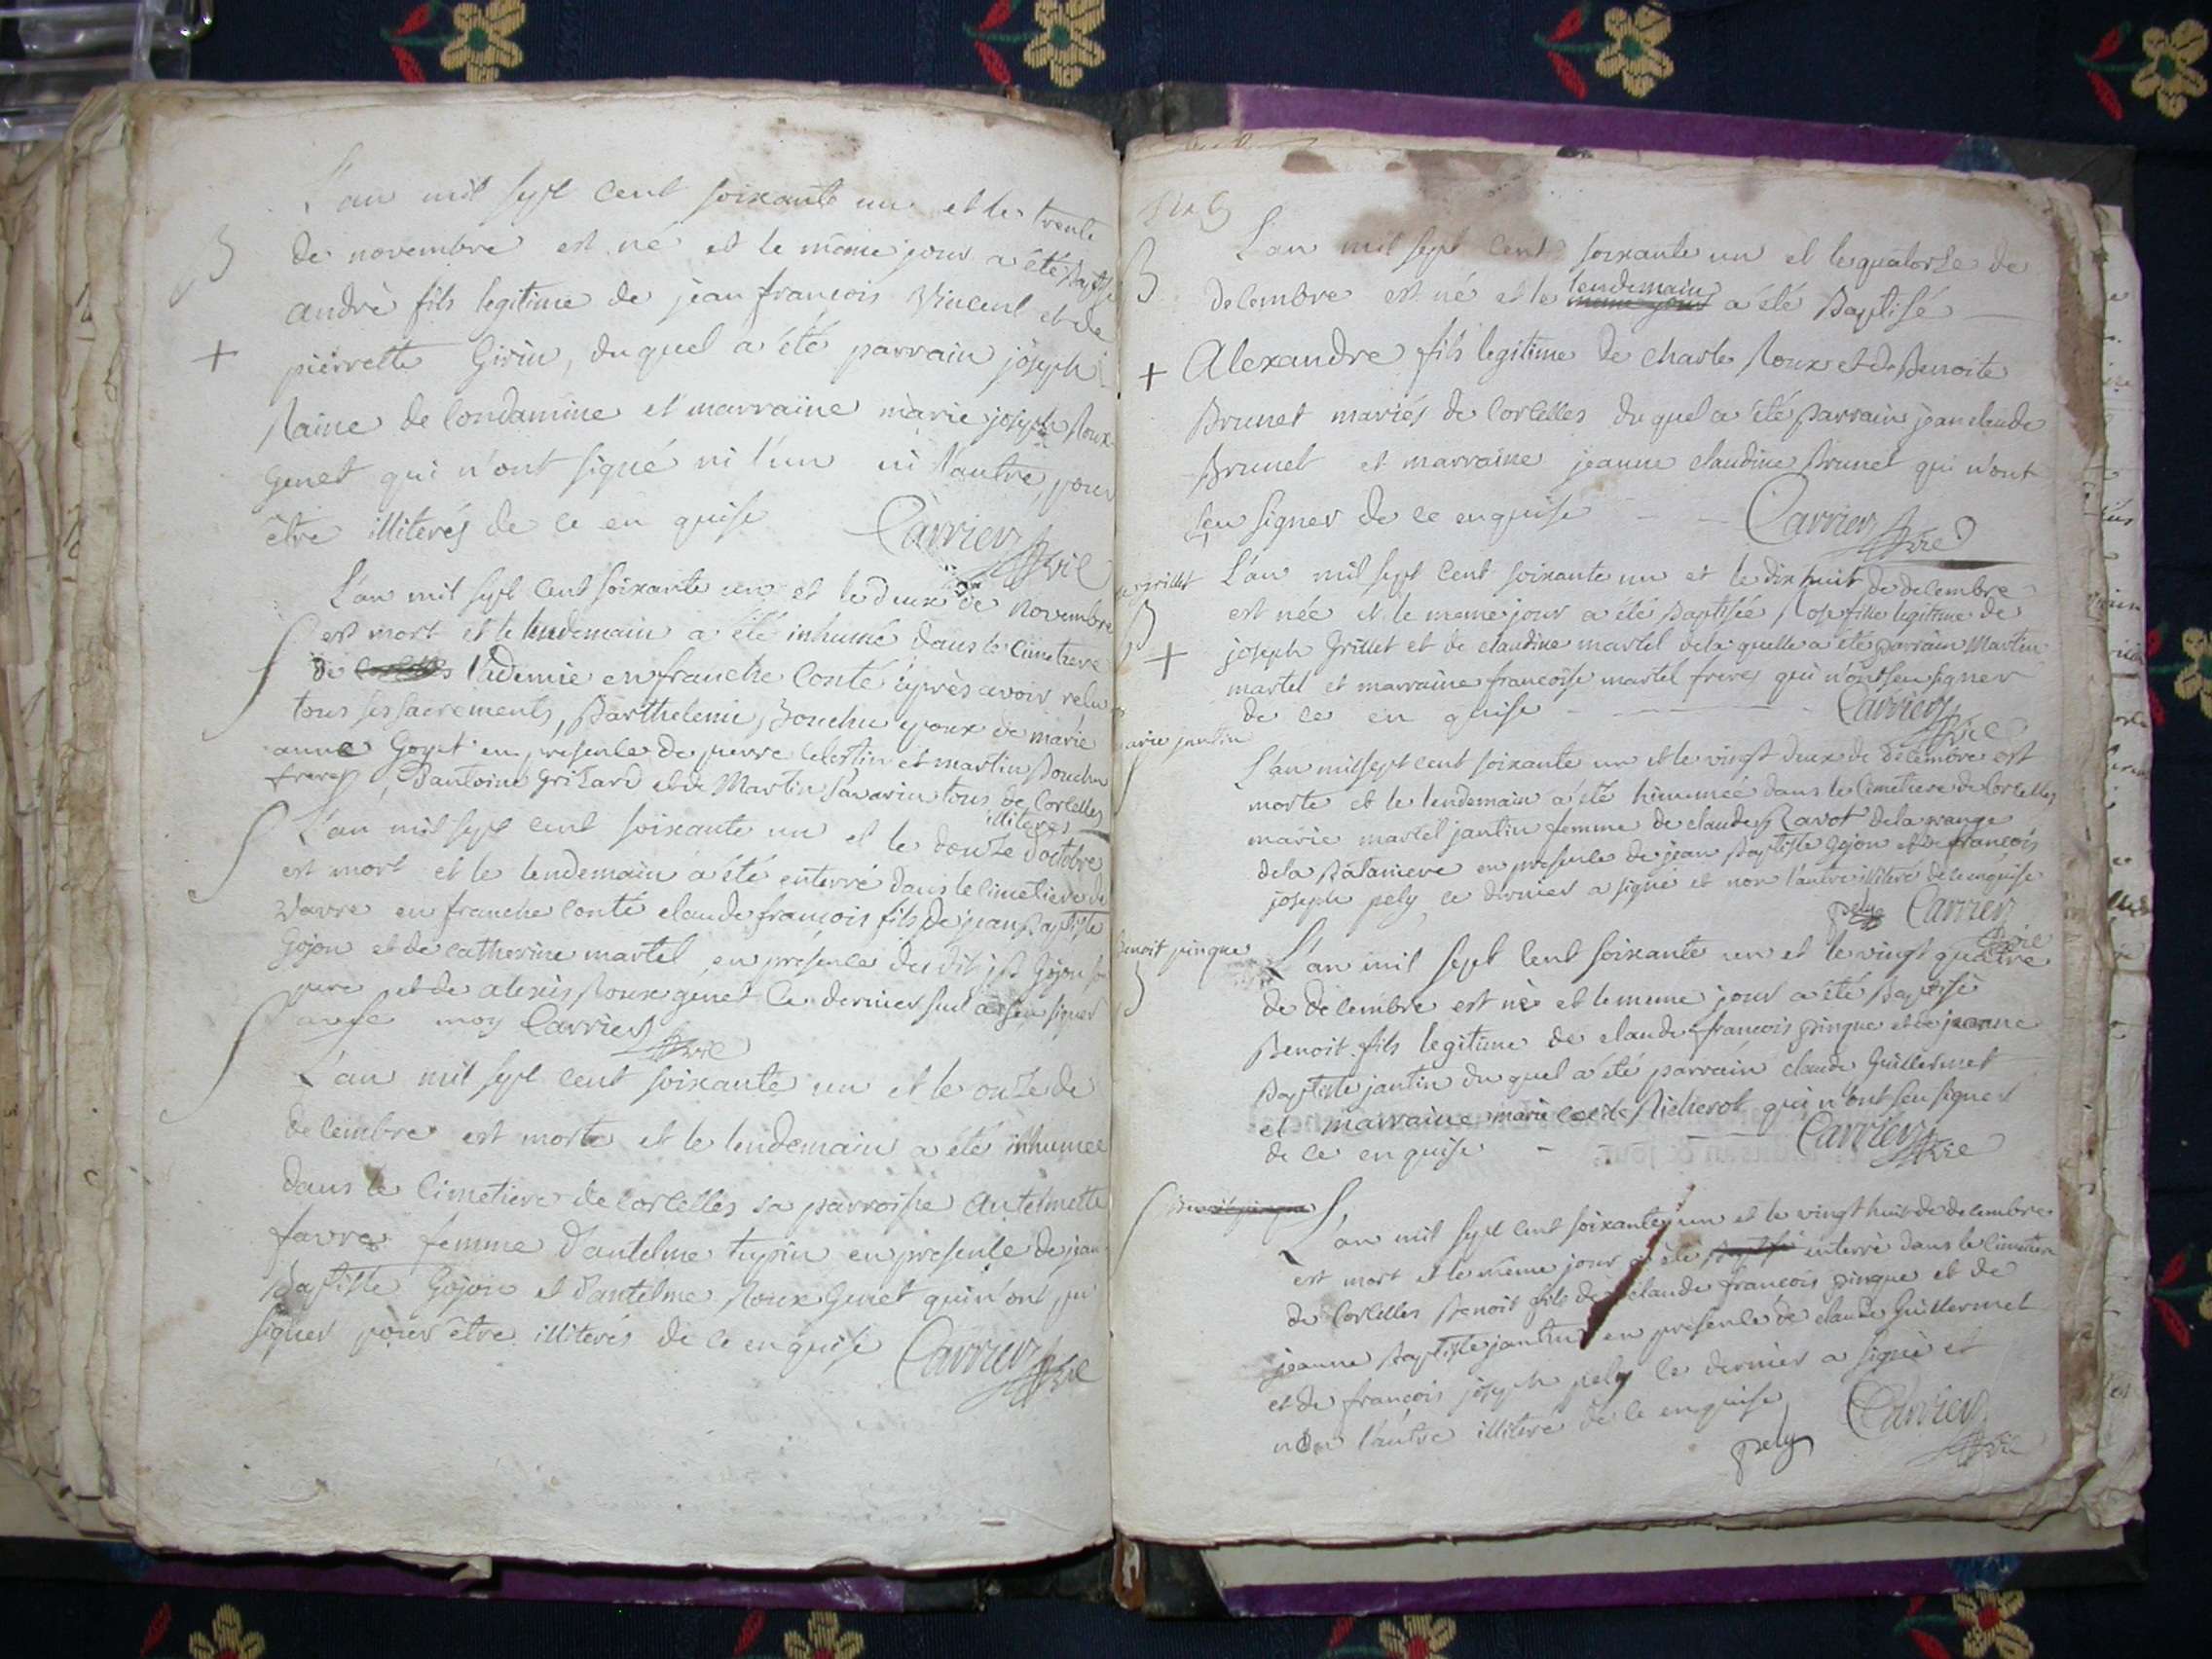 L'an mil sept cent soixante un et le trente
B
de novembre est né et le même jour a été Baptisé
andré fils legitime de jean francois Vincent et de
+
pierrette Girin, duquel a été parrain joseph
Raine de Condamine et marraine marie joseph Roux
Genet qui n'ont signé ni l'un ni l'autre, pour
être illiterés de ce en quise Carrier Vic
L'an mil sept cent soixante un et le deux de Novembre
est mort et le lendemain a été inhumé dans le cimetiere
de en franche Conté après avoir relu
tous ses sacrements, Barthelemi Bouchu epoux de marie
anne Goyet en presence de pierre Celestin et martin Bouchu
freres, D'antoine Grizard et de Martin Savarin tous de Corcelles
illiteres
L'an mil sept cent soixante un et le douze d'octobre
est mort et le lendemain a été enterré dans le cimetiere de
Vavre en franche Conté claude francois fils de jean Baptiste
Gojon et de catherine martel, en presence du dit jB Gojon
pere et de alexis Roux genet le dernier seul a seu signer
avec moy Carrier Vic
L'an mil sept cent soixante un et le onze de
decembre est morte et le lendemain a été inhumee
dans le cimetiere de Corcelles sa parroisse Antelmette
favre femme d'antelme tupin en presence de jean
Baptiste Gojon et d'antelme Roux Genet qui n'ont pu
signer pour être illiterés de ce enquise Carrier Vic
L'an mil sept cent soixante un et le quatorze de
B
lendemain
decembre est né et le meme jour a été Baptisé
+ Alexandre fils legitime de charle Roux et de Benoite
Brunet mariés de Corcelles duquel a été parrain jean claude
Brunet et marraine jeanne claudine Brunet qui n'ont
seu signer de ce enquise Carrier Vic
grillet
L'an mil sept cent soixante un et le dix huit de decembre
B
est née et le meme jour a été Baptisée Rose fille legitime de
+
joseph Grillet et de claudine martel de la quelle a été parrain Martin
martel et marraine francoise martel freres qui n'ont seu signer
de ce en quise Carrier Vic
marie jantin
L'an mil sept cent soixante un et le vingt deux de decembre est
morte et le lendemain a été hinumée dans le cimetiere de Corcelles
marie martel jantin femme de claude Ravot de la
de la Bataniere en presence de jean Baptiste Gojon et de francois
joseph pely, le dernier a signé et non l'autre illiteré de ce enquise
pely Carrier Vic
Benoit pinque
L'an mil sept cent soixante un et le vingt quatre
B
de decembre est né et le meme jour a été Baptisé
Benoit fils legitime de claude francois pinque et de jeanne
Baptiste jantin du quel a été parrain claude Guillermet
et marraine marie Cecile Richerot qui n'ont seu signer
de ce enquise Carrier Vic
Benoit pinque
L'an mil sept cent soixante un et le vingt huit de decembre
est mort et le même jour a été Baptisé enterré dans le cimetiere
de Corcelles Benoit fils de claude francois pinque et de
jeanne Baptiste jantin en presence de claude Guillermet
et de francois joseph pely le dernier a signé et
non l'autre illiteré de ce enquise
pely Carrier Vic